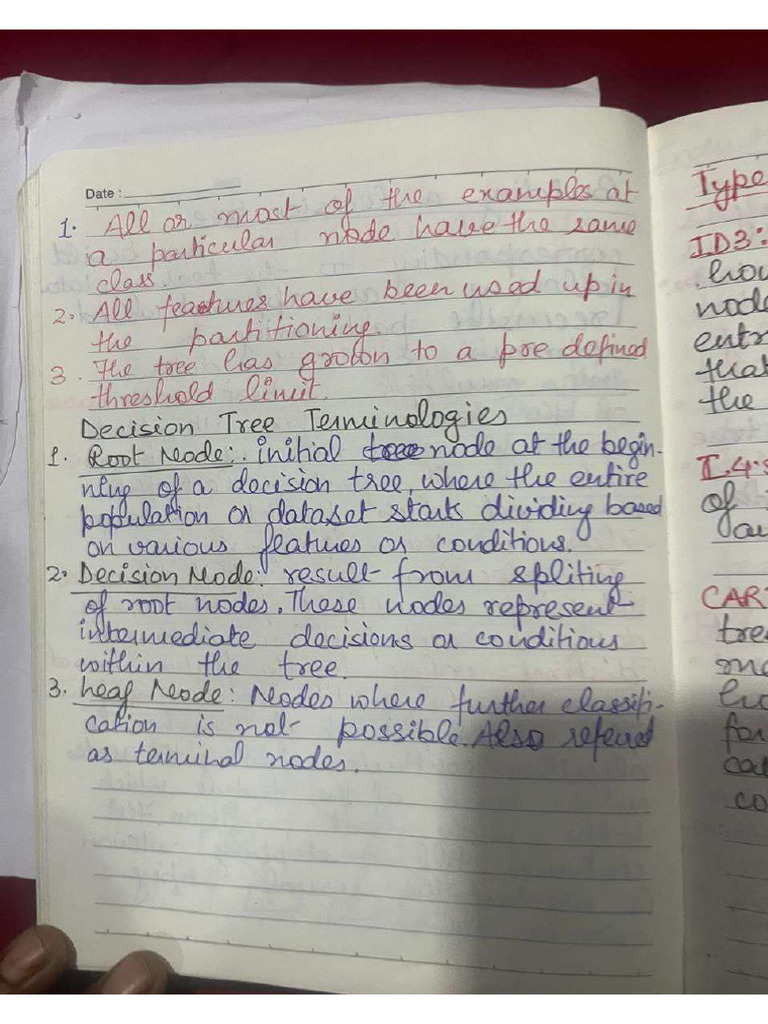 Date :
1. All or most of the examples at
a particular node have the same
class.
2. All features have been used up in
the partitioning.
3. The tree has grown to a pre defined
threshold limit.
Decision Tree Terminologies
1. Root Node: initial node at the begin-
ning of a decision tree, where the entire
population or dataset starts dividing based
on various features or conditions.
2. Decision Node: result from spliting
of root nodes. These nodes represent
intermediate decisions or conditions
within the tree.
3. Leaf Node: Nodes where further classifi-
cation is not possible. Also refered
as terminal nodes.
Type
ID3:
node
entr
that
the
of
CAR
tree
ma
for
cat
co